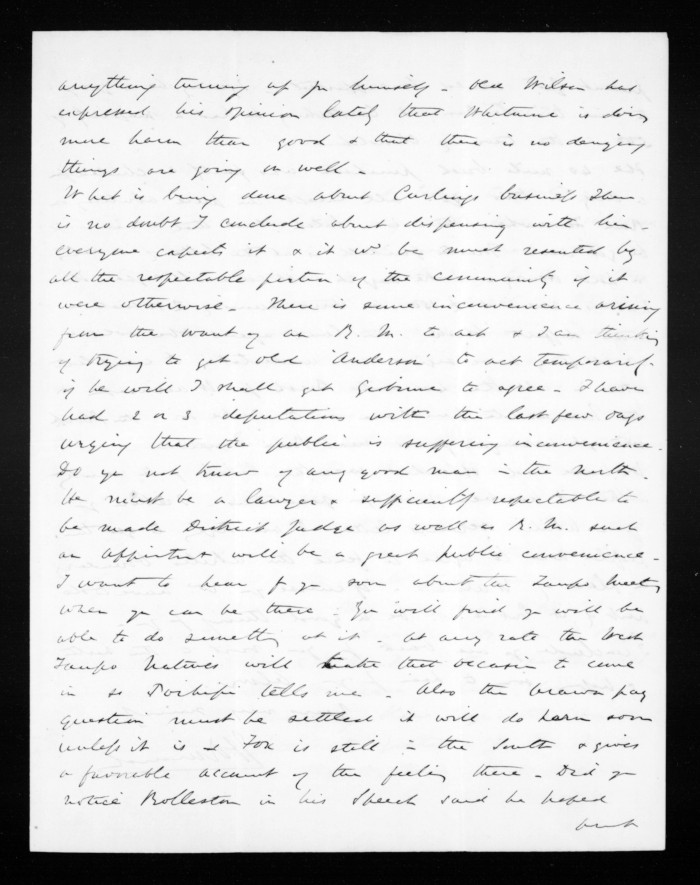 anything turning up for himself - Old Wilson has
expressed his opinion lately that Whitmore is doing
more harm than good & that there is no denying
things are going on well -
What is being done about Curlings business There
is no doubt I conclude about dispensing with him -
everyone expects it & it wd be much resented by
all the respectable portion of the community if it
were otherwise - There is some inconvenience arising
from the want of an R. M. to act & I am thinking
of trying to get old Anderson to act temporarily -
if he will I shall get Gisborne to agree - I have
had 2 or 3 deputations with the last few days
urging that the public is suffering inconvenience.
Do you not know of any good man in the North -
He must be a lawyer & sufficiently respectable to
be made District Judge as well as R. M. such
an appointmt will be a great public convenience -
I want to hear fr you soon about the Taupo Meeting
when you can be there - You will find you will be
able to do something at it - at any rate the West
Taupo Natives will take that occasion to come
in so Topia tells me - Also the
question must be settled it will do harm soon
unless it is - Fox is still in the South & gives
a favorable account of the feeling there - Did you
notice Rolleston in his Speech said he hoped